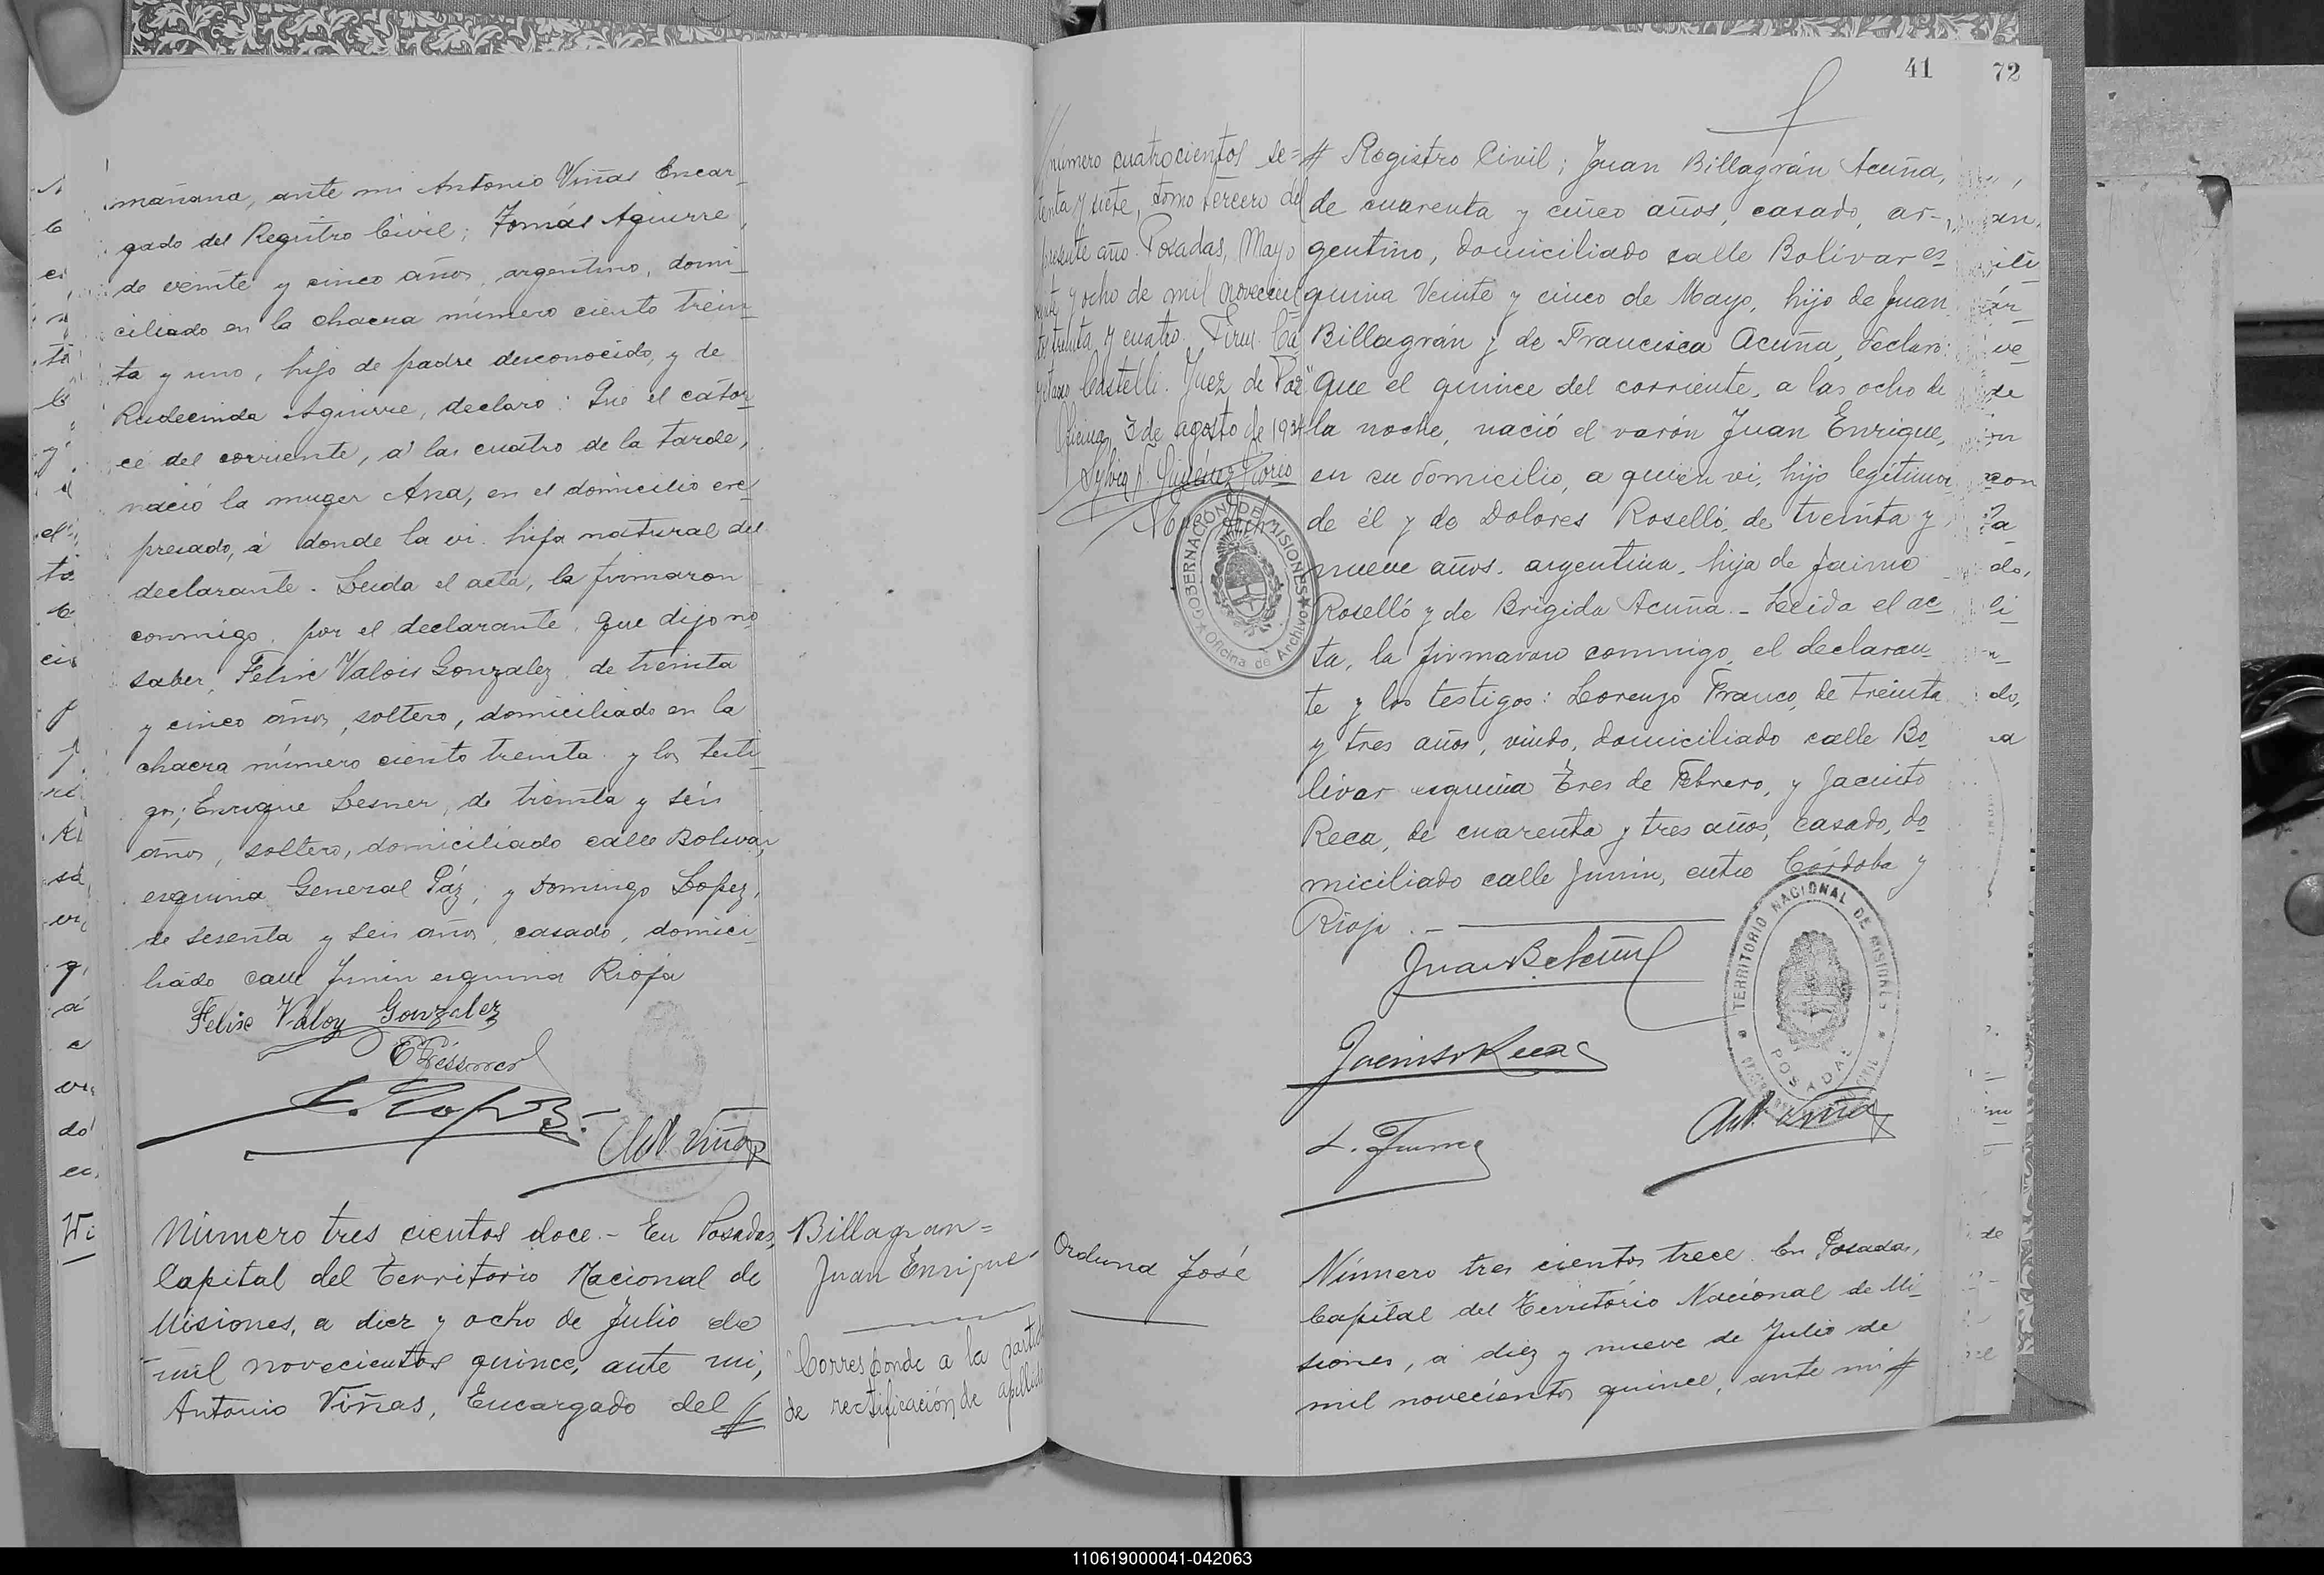 mañana, ante mi Antonio Viñas Encar-
gado del Registro Civil; Tomás Aguirre,
de veinte y cinco años, argentino, domi-
ciliado en la chacra número ciento trein-
ta y uno, hijo de padre desconocido, y de
Rudecinda Aguirre, declaro: Que el cator-
ce del corriente, a las cuatro de la tarde,
nació la muger Ana, en el domicilio ex-
presado, á donde la vi. hija natural del
declarante. Leida el acta, la firmaron
conmigo, por el declarante, que dijo no
saber, Felix Valois Gonzalez, de treinta
y cinco años, soltero, domiciliado en la
chacra número ciento treinta y los testi-
gos; Enrique Lesner, de treinta y seis
años, soltero, domiciliado calle Bolivar,
esquina General Páz, y Domingo Lopez,
de sesenta y seis años, casado, domici-
liado calle Junin esquina Rioja
Felix Valoy Gonzalez
Ant. Viñas
Número tres cientos doce.- En Posadas,
Capital del Territorio Nacional de
Misiones, a diez y ocho de Julio de
mil novecientos quince, ante mi,
Antonio Viñas, Encargado del //
Billagran=
Juan Enrique
Corresponde a la partida
de rectificación de apellido
41
72
número cuatrocientos se=
tenta y siete, tomo tercero del
presente año. Posadas, Mayo
veinte y ocho de mil novecien
tos treinta y cuatro. Firm. Ca
yetano Castelli. Juez de Paz"
Oficina, 3 de agosto de 1934
GOBERNACION DE MISIONES
Oficina de Archivo
// Registro Civil; Juan Billagrán Acuña,
de cuarenta y cinco años, casado, ar-
gentino, domiciliado calle Bolívar es-
quina Veinte y cinco de Mayo, hijo de Juan
Billagrán y de Francisca Acuña, declaro:
Que el quince del corriente, a las ocho de
la noche, nació el varón Juan Enrique,
en su domicilio, a quien vi, hijo legítimo
de él y de Dolores Roselló, de treinta y
nueve años, argentina, hija de Jaime
Roselló y de Brígida Acuña.- Leida el ac-
ta, la firmaron conmigo, el declaran-
te y los testigos: Lorenzo Franco, de treinta
y tres años, viudo, domiciliado calle Bo-
livar esquina Tres de Febrero, y Jacinto
Reca, de cuarenta y tres años, casado, do-
miciliado calle Junin, entre Córdoba y
Rioja.-
Juan B. Acuña
Jacinto Reca
Ant. Viñas
TERRITORIO NACIONAL DE MISIONES
POSADAS
Orduna José
Número tres cientos trece. En Posadas,
Capital del Territorio Nacional de Mi-
siones, a diez y nueve de Julio de
mil novecientos quince, ante mi //
110619000041-042063